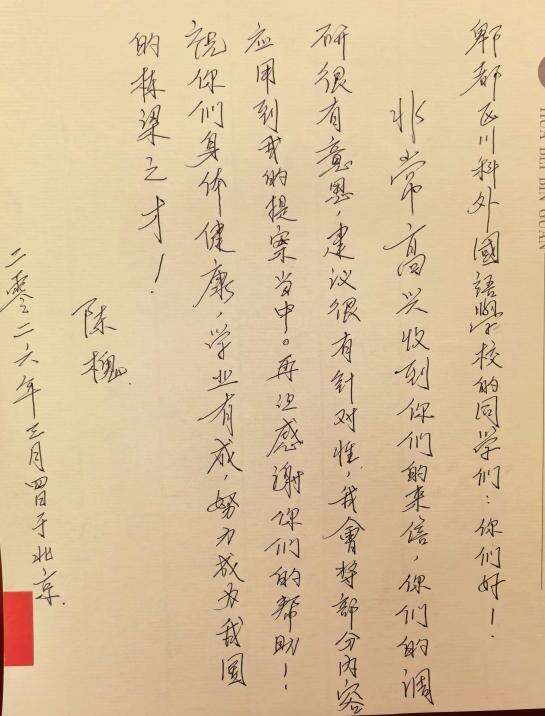 郫都区川科外國語學校的同学们：你们好！
非常高兴收到你们的来信，你们的调
研很有意思，建议很有针对性，我會将部分内容
应用到我的提案当中。再次感谢你们的帮助！
祝你们身体健康，学业有成，努力成为我国
的栋梁之才！
陈槐
二零二六年三月四日于北京
HUA BEI BIN GUAN